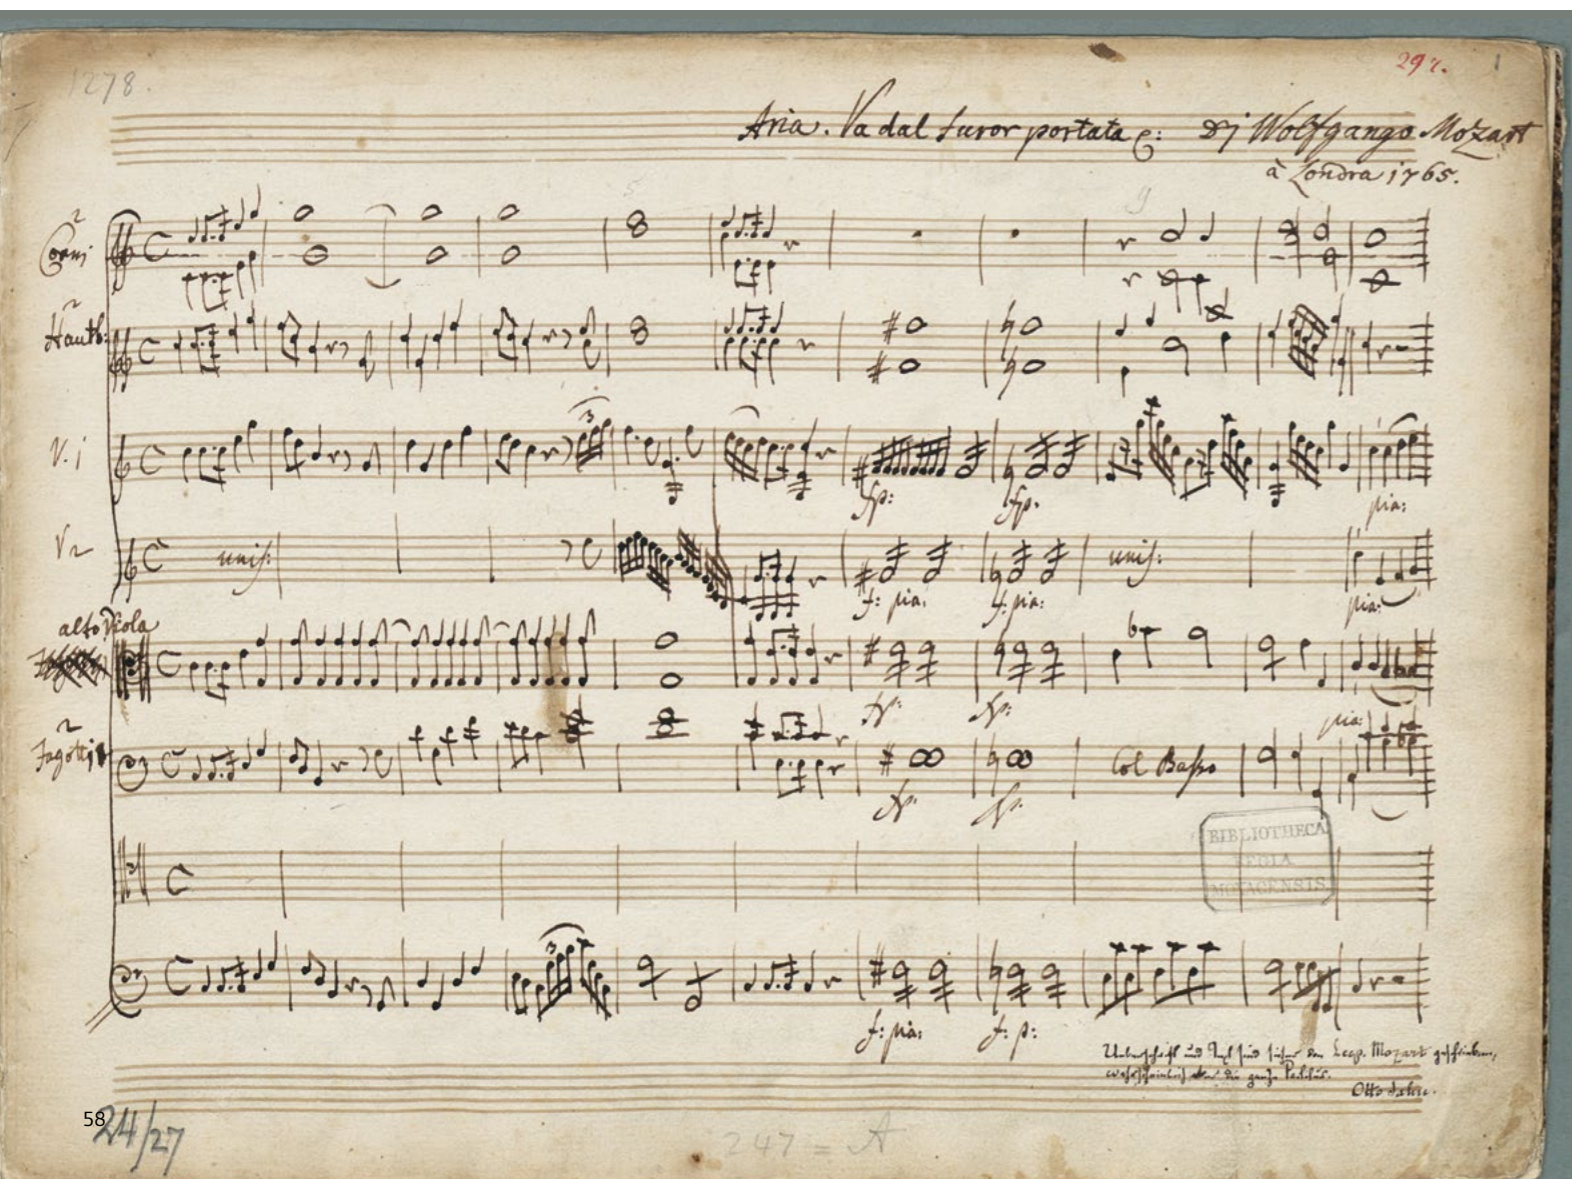 1278.
292. 1
Aria. Va dal furor portata &: Dj Wolfgango Mozart
à Londra 1765.
2
Corni
2
Hautb:
V. j
3
fp: fp. pia:
V 2 unis: unis:
f: pia. f: pia: pia:
alto Viola
fp: fp: pia:
2
Fagotti
Col Basso
fp: fp:
BIBLIOTHECA
REGIA
MONACENSIS
3
f: pia: f: p:
Ueberschrift und Text sind sicher von Leop. Mozart geschrieben,
wahrscheinlich die ganze Partitur.
Otto Jahn.
58
24/27
247 = A